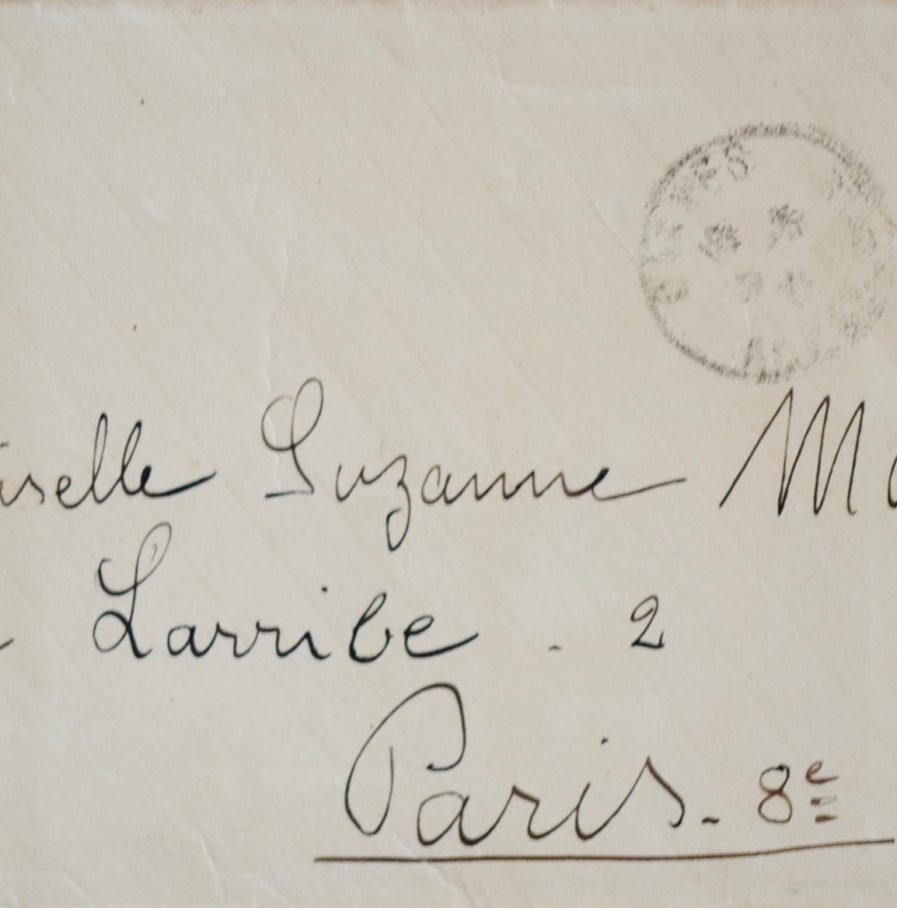 iselle Suzanne M
Larribe . 2
Paris. 8e